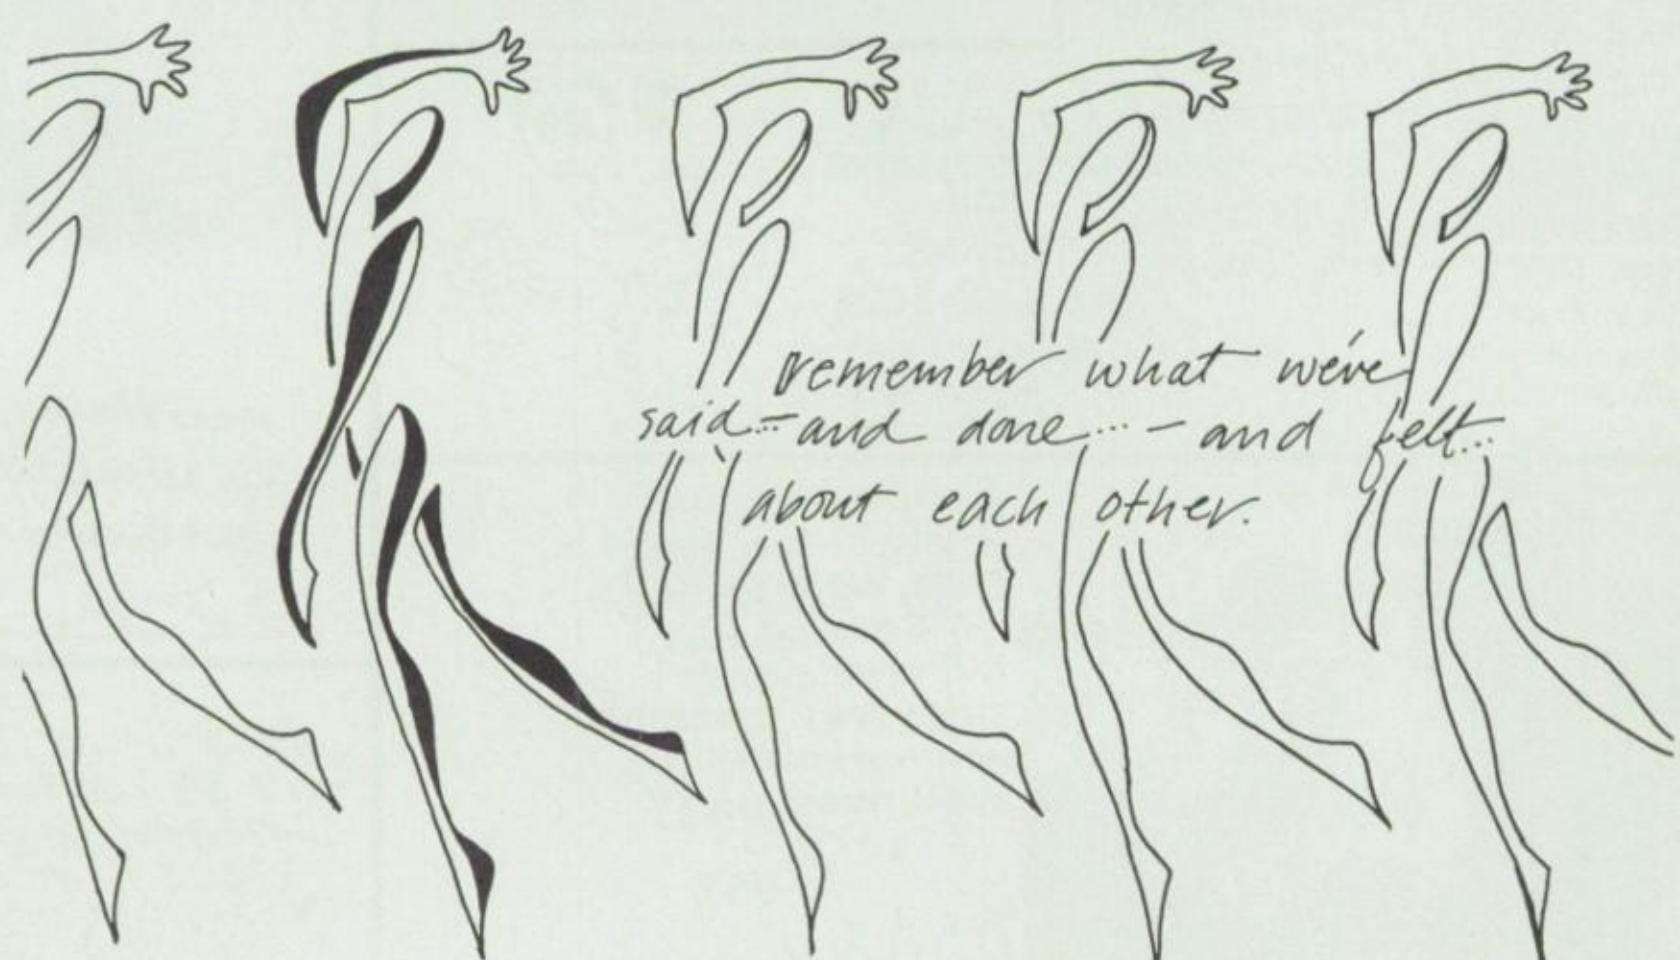 remember what we've
said... - and done... - and felt...
about each other.